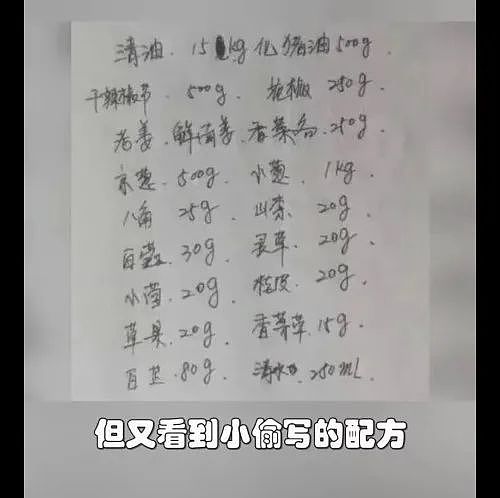 清油. 15kg 化猪油500g.
干辣椒节. 500g. 花椒 250g.
老姜. 鲜南姜. 香菜各. 250g.
京葱. 500g. 小葱. 1kg.
八角 25g. 山柰. 20g.
白蔻. 30g. 灵草. 20g.
小茴. 20g. 桂皮. 20g
草果. 20g. 香茅草. 15g.
白芷. 80g. 清水 250mL.
但又看到小偷写的配方